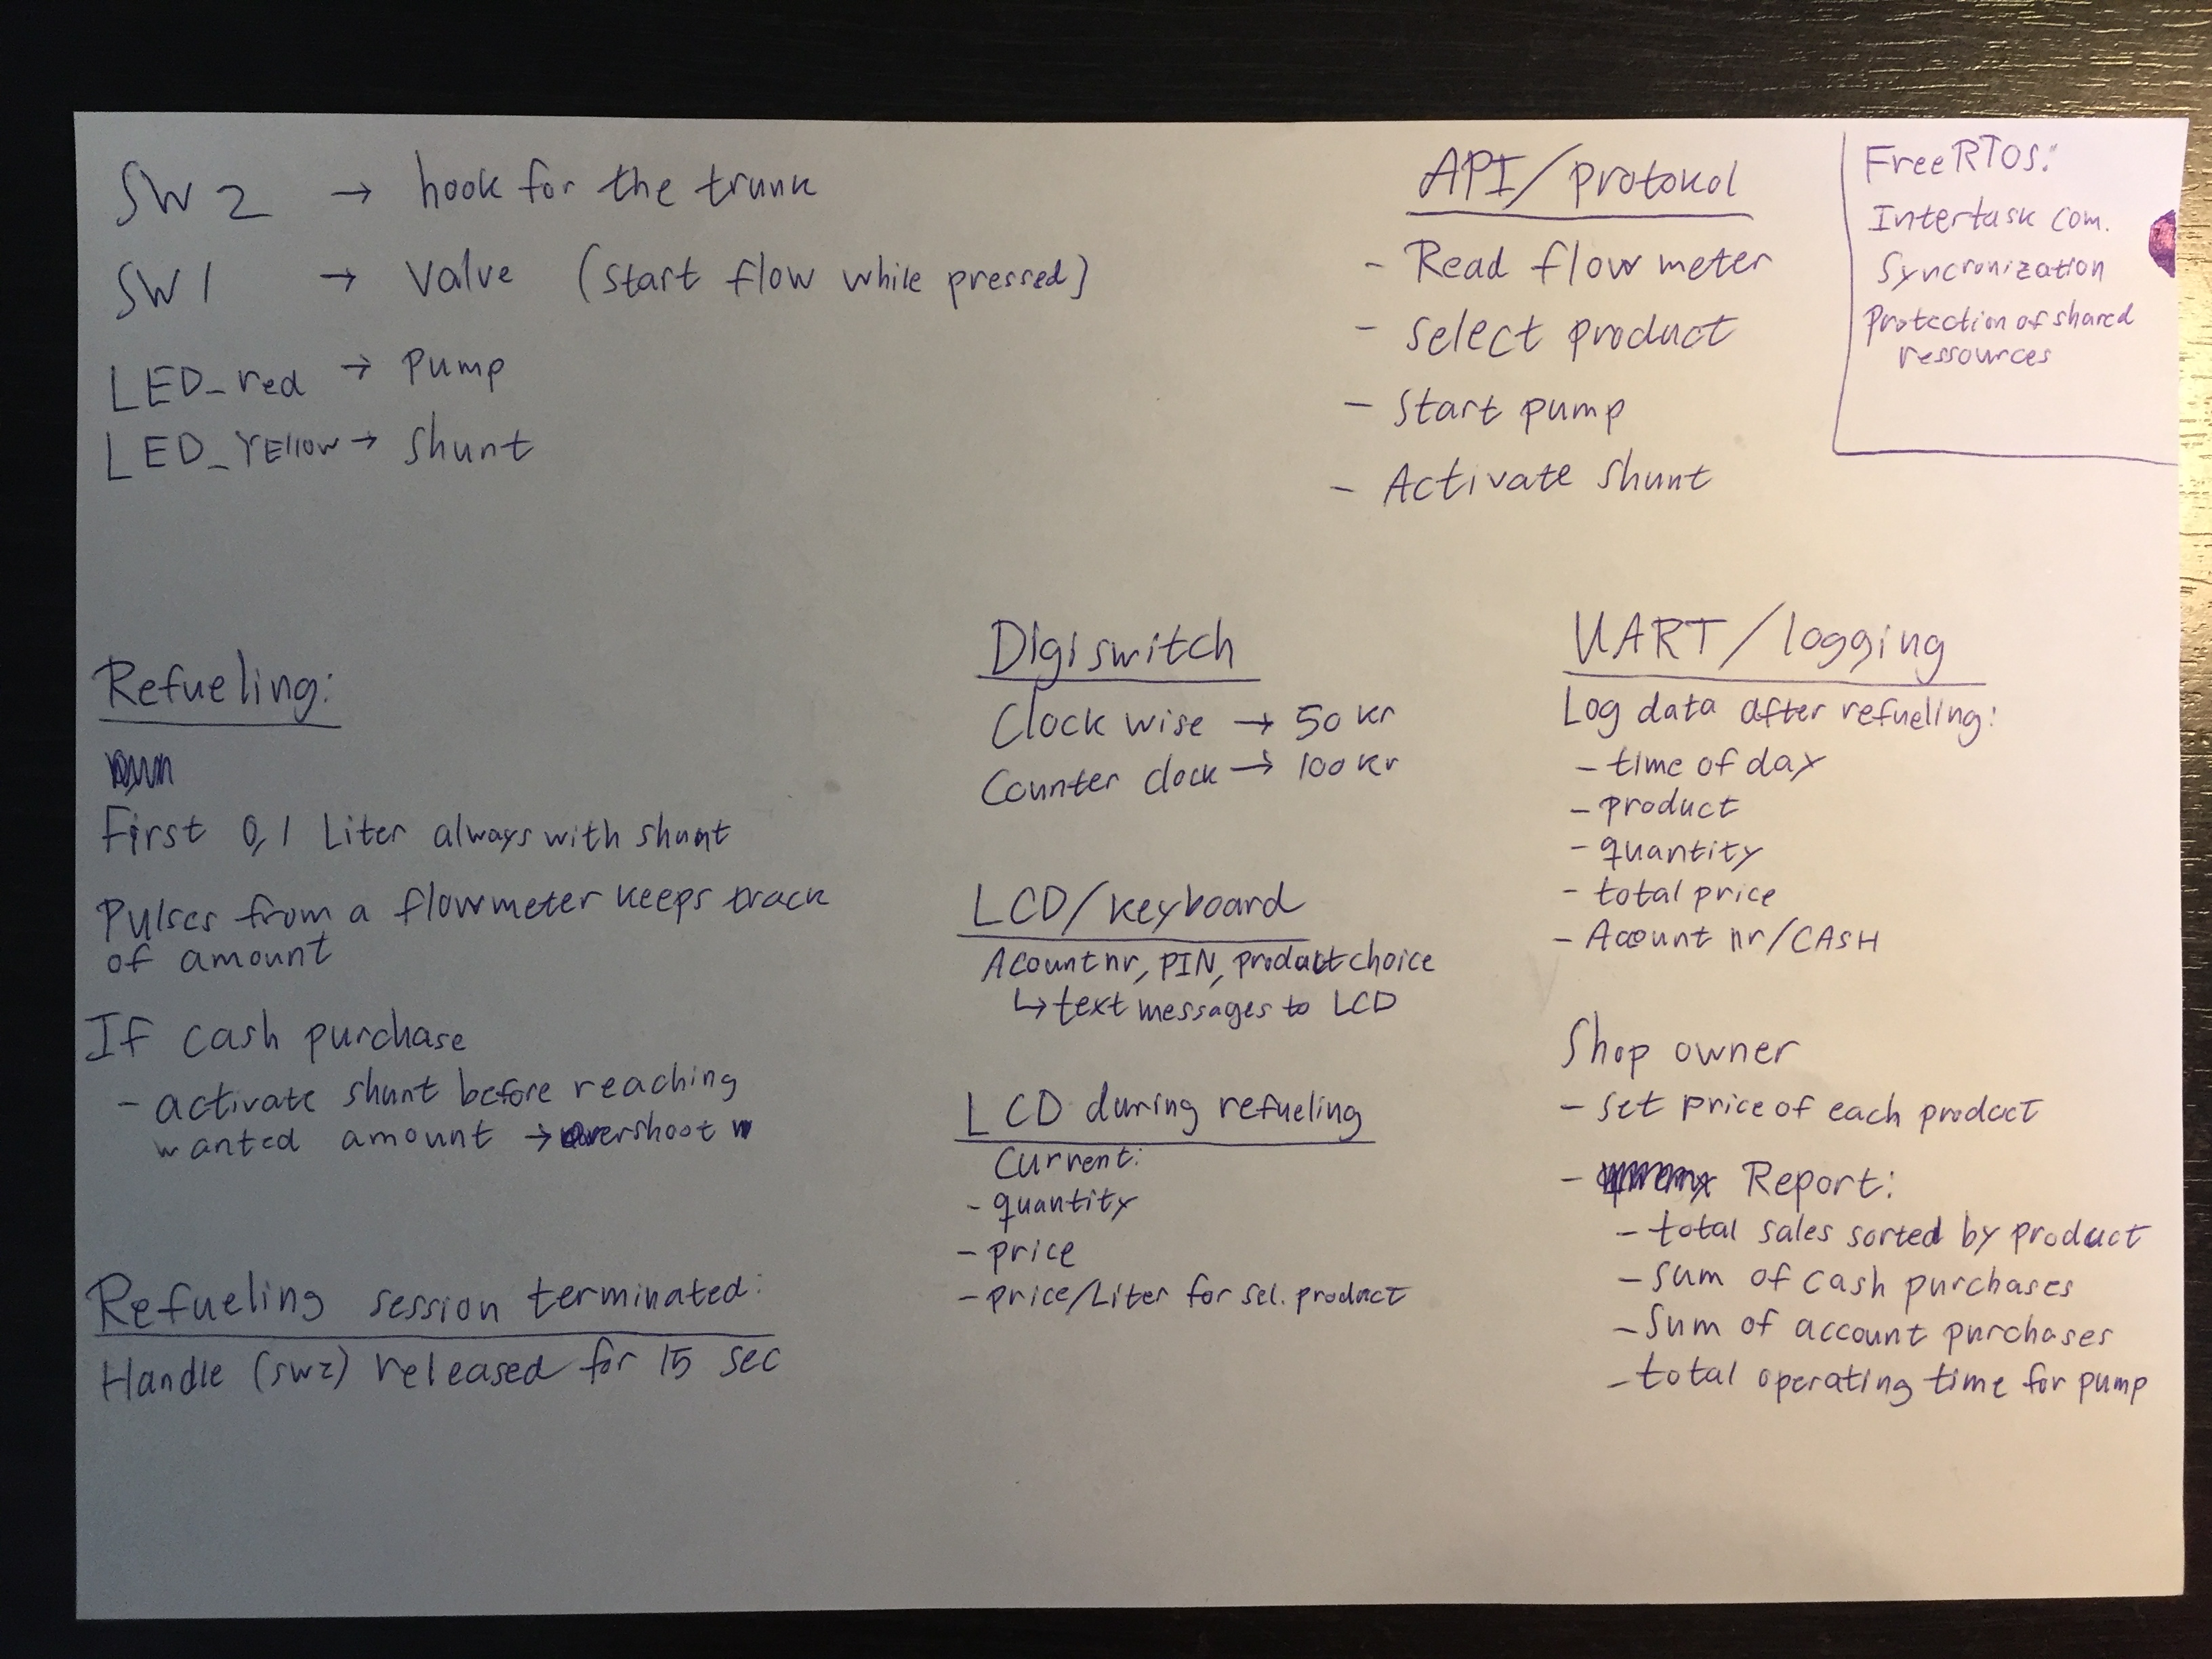 SW2 → hook for the trunk
SW1 → Valve (start flow while pressed)
LED_red → Pump
LED_YEllow → shunt
API/protokol
- Read flow meter
- select product
- Start pump
- Activate shunt
FreeRTOS:
Intertask com.
Syncronization
Protection of shared
ressources
Refueling:
First 0,1 Liter always with shunt
Pulses from a flowmeter keeps track
of amount
If cash purchase
- activate shunt before reaching
wanted amount → overshoot
Refueling session terminated:
Handle (sw2) released for 15 sec
Digiswitch
Clock wise → 50 kr
Counter clock → 100 kr
LCD/keyboard
Acountnr, PIN, product choice
↳ text messages to LCD
LCD during refueling
Current:
- quantity
- price
- price/Liter for sel. product
UART/logging
Log data after refueling:
- time of day
- product
- quantity
- total price
- Acount nr/CASH
Shop owner
- set price of each product
- Report:
- total sales sorted by product
- sum of cash purchases
- Sum of account purchases
- total operating time for pump